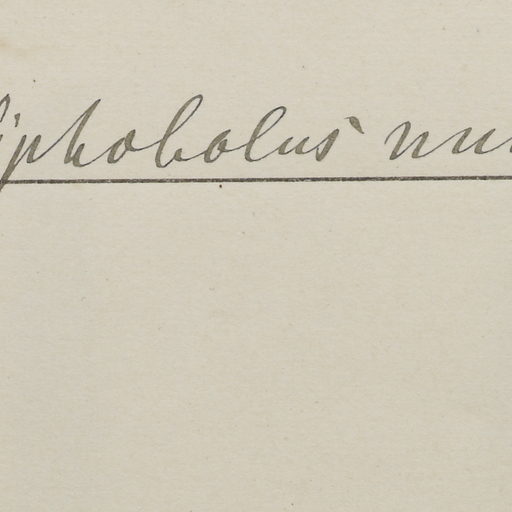 iphobolus num